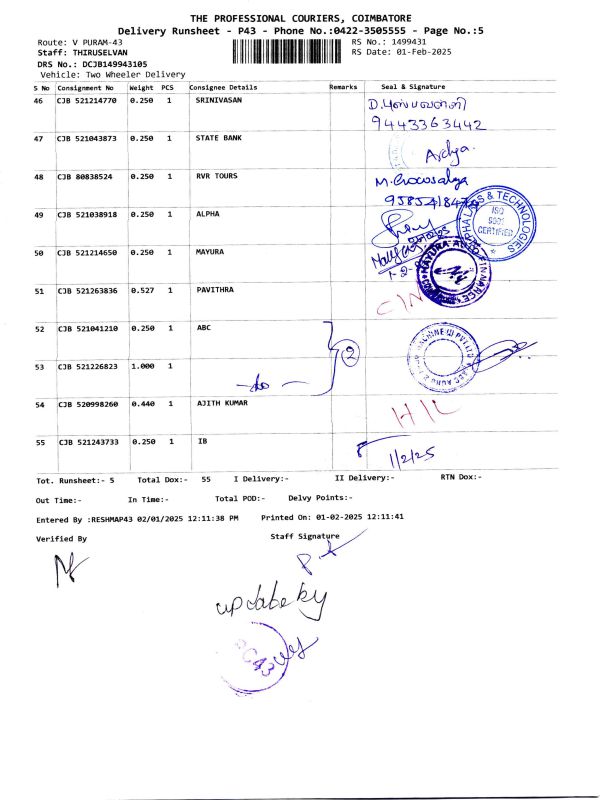 THE PROFESSIONAL COURIERS, COIMBATORE
Delivery Runsheet - P43 - Phone No.:0422-3505555 - Page No.:5
Route: V PURAM-43 RS No.: 1499431
Staff: THIRUSELVAN RS Date: 01-Feb-2025
DRS No.: DCJB149943105
Vehicle: Two Wheeler Delivery
S No Consignment No Weight PCS Consignee Details Remarks Seal & Signature
46 CJB 521214770 0.250 1 SRINIVASAN
9443363442
47 CJB 521043873 0.250 1 STATE BANK
48 CJB 80838524 0.250 1 RVR TOURS
49 CJB 521038918 0.250 1 ALPHA
ALPHA LABS & TECHNOLOGIES
ISO
9001
CERTIFIED
50 CJB 521214650 0.250 1 MAYURA
51 CJB 521263836 0.527 1 PAVITHRA
52 CJB 521041210 0.250 1 ABC
2
53 CJB 521226823 1.000 1
-do-
54 CJB 520998260 0.440 1 AJITH KUMAR
55 CJB 521243733 0.250 1 IB
1/2/25
Tot. Runsheet:- 5 Total Dox:- 55 I Delivery:- II Delivery:- RTN Dox:-
Out Time:- In Time:- Total POD:- Delvy Points:-
Entered By :RESHMAP43 02/01/2025 12:11:38 PM Printed On: 01-02-2025 12:11:41
Verified By Staff Signature
update by